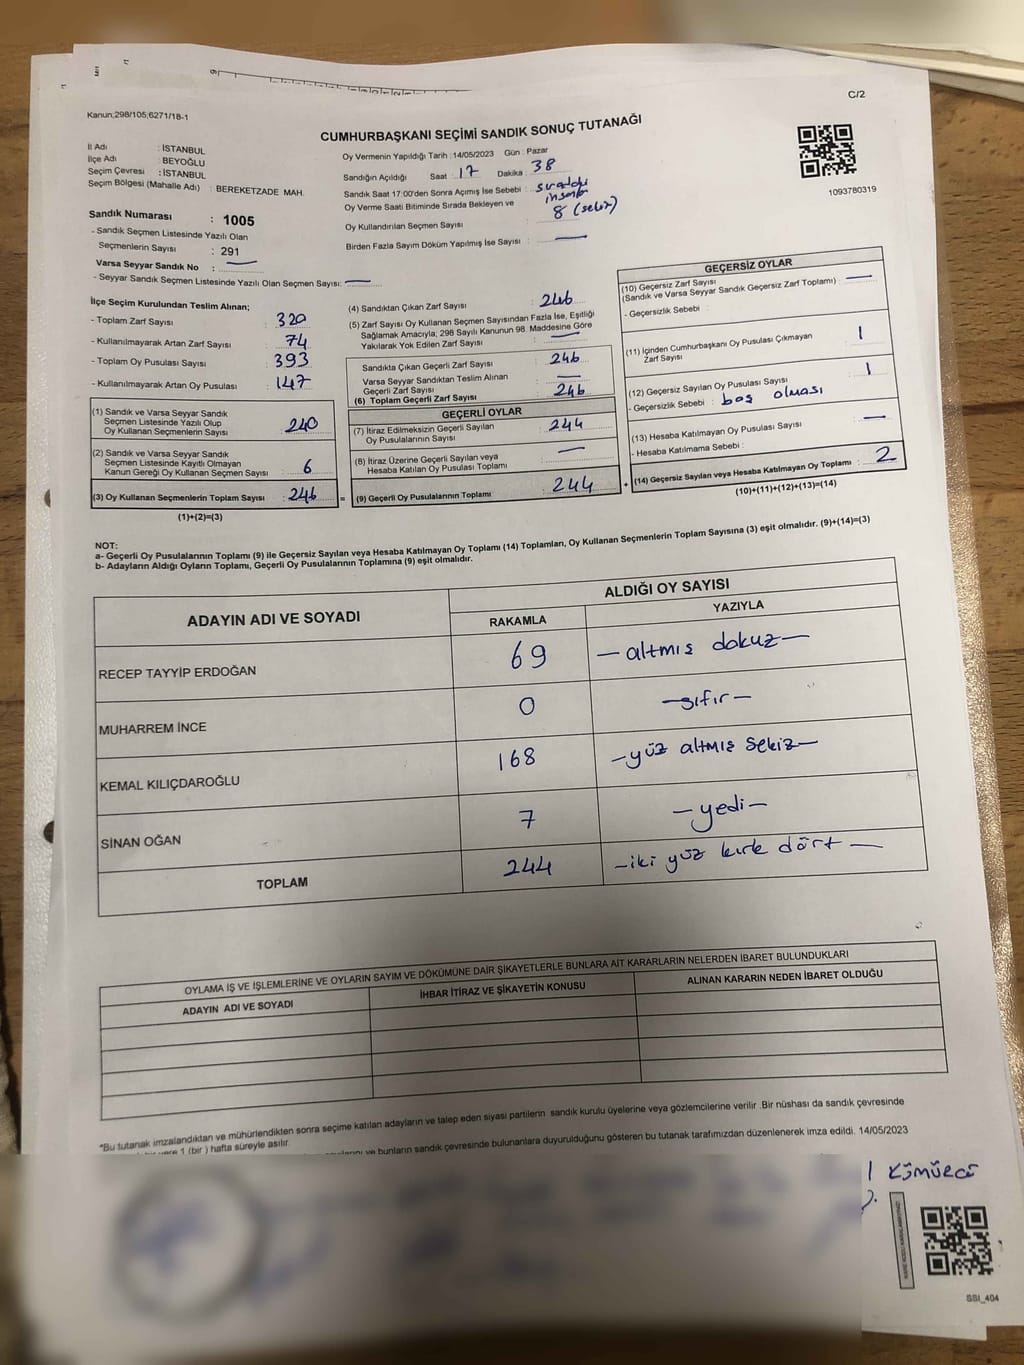 C/2
Kanun;298/105;6271/18-1
CUMHURBAŞKANI SEÇİMİ SANDIK SONUÇ TUTANAĞI
İl Adı : İSTANBUL
İlçe Adı : BEYOĞLU
Seçim Çevresi : İSTANBUL
Seçim Bölgesi (Mahalle Adı) : BEREKETZADE MAH.
Oy Vermenin Yapıldığı Tarih :14/05/2023 Gün : Pazar
Sandığın Açıldığı Saat : 17 Dakika : 38
Sandık Saat 17:00'den Sonra Açımış İse Sebebi : sıradaki insanlar
Oy Verme Saati Bitiminde Sırada Bekleyen ve
Oy Kullandırılan Seçmen Sayısı : 8 (sekiz)
Birden Fazla Sayım Döküm Yapılmış İse Sayısı : —
1093780319
Sandık Numarası : 1005
- Sandık Seçmen Listesinde Yazılı Olan
Seçmenlerin Sayısı : 291
Varsa Seyyar Sandık No : —
- Seyyar Sandık Seçmen Listesinde Yazılı Olan Seçmen Sayısı: —
İlçe Seçim Kurulundan Teslim Alınan;
- Toplam Zarf Sayısı : 320
- Kullanılmayarak Artan Zarf Sayısı : 74
- Toplam Oy Pusulası Sayısı : 393
- Kullanılmayarak Artan Oy Pusulası : 147
(1) Sandık ve Varsa Seyyar Sandık
Seçmen Listesinde Yazılı Olup
Oy Kullanan Seçmenlerin Sayısı : 240
(2) Sandık ve Varsa Seyyar Sandık
Seçmen Listesinde Kayıtlı Olmayan
Kanun Gereği Oy Kullanan Seçmen Sayısı : 6
(3) Oy Kullanan Seçmenlerin Toplam Sayısı : 246 =
(1)+(2)=(3)
(4) Sandıktan Çıkan Zarf Sayısı : 246
(5) Zarf Sayısı Oy Kullanan Seçmen Sayısından Fazla İse, Eşitliği
Sağlamak Amacıyla; 298 Sayılı Kanunun 98. Maddesine Göre
Yakılarak Yok Edilen Zarf Sayısı : —
Sandıkta Çıkan Geçerli Zarf Sayısı : 246
Varsa Seyyar Sandıktan Teslim Alınan
Geçerli Zarf Sayısı : —
(6) Toplam Geçerli Zarf Sayısı : 246
GEÇERLİ OYLAR
(7) İtiraz Edilmeksizin Geçerli Sayılan
Oy Pusulalarının Sayısı : 244
(8) İtiraz Üzerine Geçerli Sayılan veya
Hesaba Katılan Oy Pusulası Toplamı : —
(9) Geçerli Oy Pusulalarının Toplamı : 244 +
GEÇERSİZ OYLAR
(10) Geçersiz Zarf Sayısı
(Sandık ve Varsa Seyyar Sandık Geçersiz Zarf Toplamı) : —
- Geçersizlik Sebebi :
(11) İçinden Cumhurbaşkanı Oy Pusulası Çıkmayan
Zarf Sayısı : 1
(12) Geçersiz Sayılan Oy Pusulası Sayısı : 1
- Geçersizlik Sebebi : boş olması
(13) Hesaba Katılmayan Oy Pusulası Sayısı : —
- Hesaba Katılmama Sebebi :
(14) Geçersiz Sayılan veya Hesaba Katılmayan Oy Toplamı : 2
(10)+(11)+(12)+(13)=(14)
NOT:
a- Geçerli Oy Pusulalarının Toplamı (9) ile Geçersiz Sayılan veya Hesaba Katılmayan Oy Toplamı (14) Toplamları, Oy Kullanan Seçmenlerin Toplam Sayısına (3) eşit olmalıdır. (9)+(14)=(3)
b- Adayların Aldığı Oyların Toplamı, Geçerli Oy Pusulalarının Toplamına (9) eşit olmalıdır.
ADAYIN ADI VE SOYADI
ALDIĞI OY SAYISI
RAKAMLA YAZIYLA
RECEP TAYYİP ERDOĞAN 69 —altmış dokuz—
MUHARREM İNCE 0 —sıfır—
KEMAL KILIÇDAROĞLU 168 —yüz altmış sekiz—
SİNAN OĞAN 7 —yedi—
TOPLAM 244 —iki yüz kırk dört—
OYLAMA İŞ VE İŞLEMLERİNE VE OYLARIN SAYIM VE DÖKÜMÜNE DAİR ŞİKAYETLERLE BUNLARA AİT KARARLARIN NELERDEN İBARET BULUNDUKLARI
ADAYIN ADI VE SOYADI İHBAR İTİRAZ VE ŞİKAYETİN KONUSU ALINAN KARARIN NEDEN İBARET OLDUĞU
*Bu tutanak imzalandıktan ve mühürlendikten sonra seçime katılan adayların ve talep eden siyasi partilerin sandık kurulu üyelerine veya gözlemcilerine verilir .Bir nüshası da sandık çevresinde
yere 1 (bir ) hafta süreyle asılır.
ve bunların sandık çevresinde bulunanlara duyurulduğunu gösteren bu tutanak tarafımızdan düzenlenerek imza edildi. 14/05/2023
Kömürcü
SSI_404